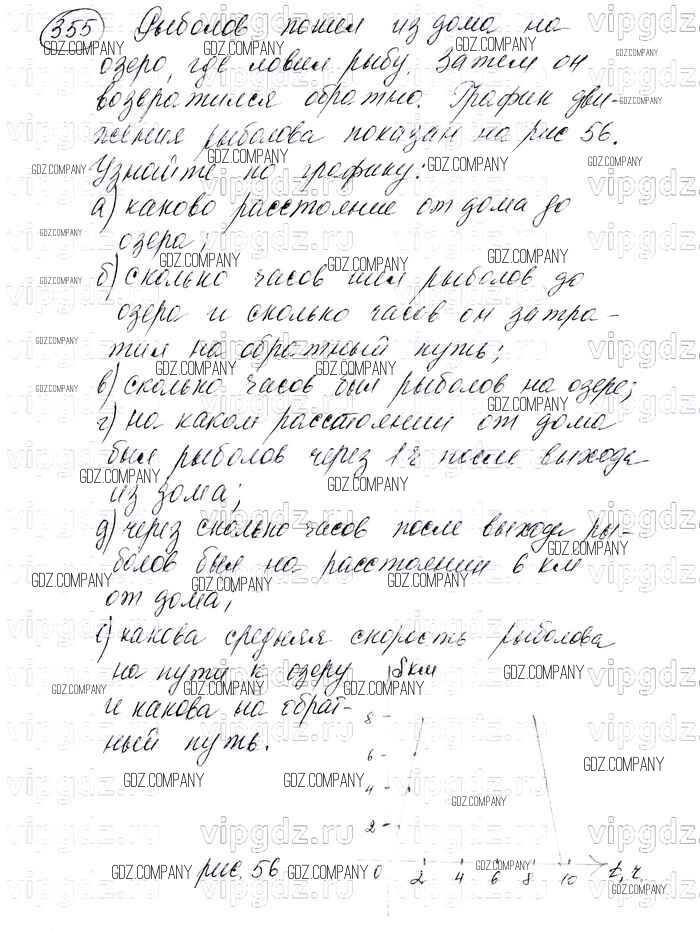 355 Рыболов пошел из дома на
озеро, где ловил рыбу. Затем он
возвратился обратно. График дви-
жения рыболова показан на рис 56.
Узнайте по графику:
а) каково расстояние от дома до
озера;
б) сколько часов шел рыболов до
озера и сколько часов он затра-
тил на обратный путь;
в) сколько часов был рыболов на озере;
г) на каком расстоянии от дома
был рыболов через 1 ч после выхода
из дома;
д) через сколько часов после выхода ры-
болов был на расстоянии 6 км
от дома;
е) какова средняя скорость рыболова
на пути к озеру
и какова на обрат-
ный путь.
S км
8
6
4
2
0 2 4 6 8 10 t, ч
рис. 56
GDZ.COMPANY
vipgdz.ru